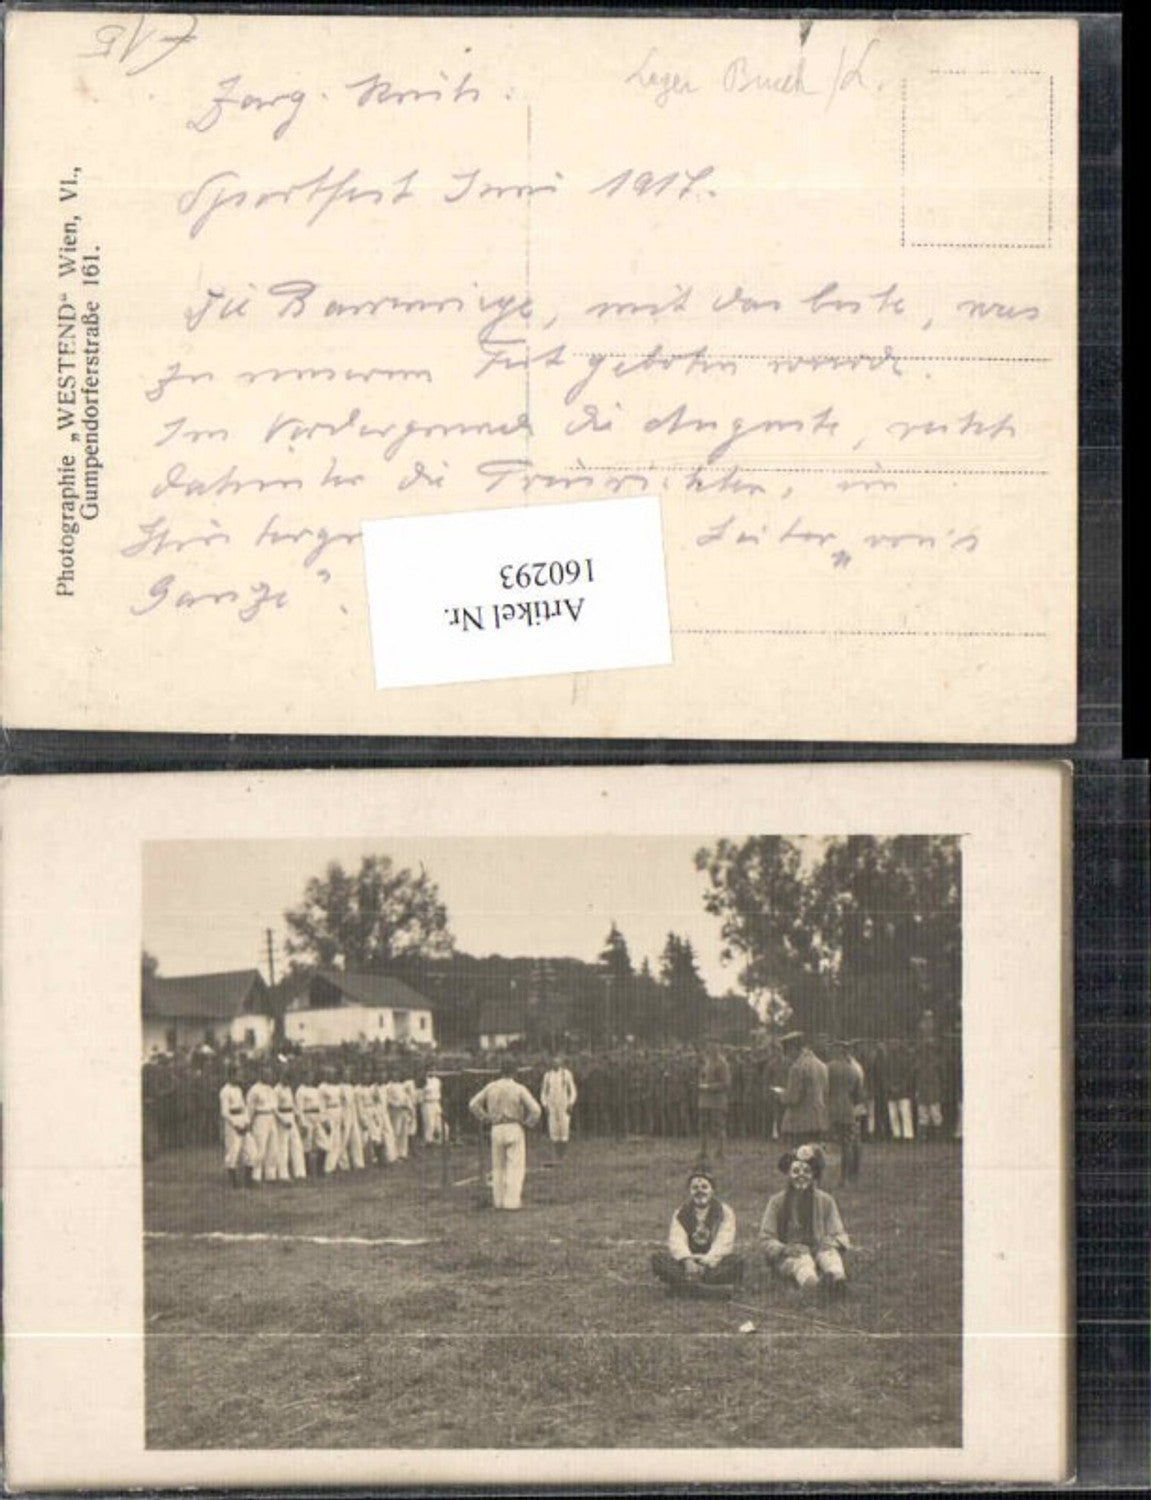 Lager Bruck /L.
Sportfest Juni 1917.
Die Barrenriege, mit das beste, was
zu unserem Fest geboten wurde.
Im Vordergrunde die Auguste, rechts
dahinter die Preisrichter, im
Leiter „von's
Ganze".
Photographie „WESTEND“ Wien, VI.,
Gumpendorferstraße 161.
Artikel Nr.
160293